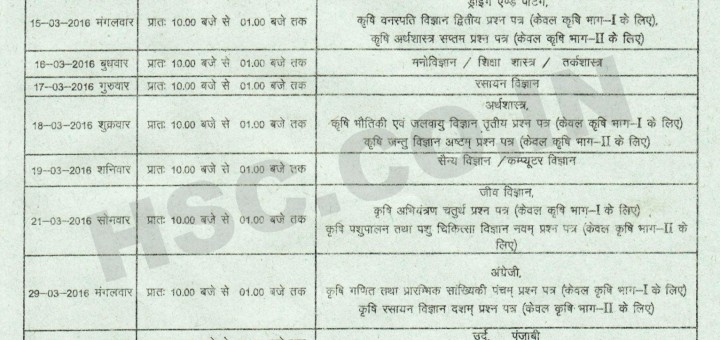 ड्राइंग एण्ड पेंटिंग,
15-03-2016 मंगलवार प्रातः 10.00 बजे से 01.00 बजे तक कृषि वनस्पति विज्ञान द्वितीय प्रश्न पत्र (केवल कृषि भाग-I के लिए),
कृषि अर्थशास्त्र सप्तम प्रश्न पत्र (केवल कृषि भाग-II के लिए)
16-03-2016 बुधवार प्रातः 10.00 बजे से 01.00 बजे तक मनोविज्ञान / शिक्षा शास्त्र / तर्कशास्त्र
17-03-2016 गुरुवार प्रातः 10.00 बजे से 01.00 बजे तक रसायन विज्ञान
अर्थशास्त्र,
18-03-2016 शुक्रवार प्रातः 10.00 बजे से 01.00 बजे तक कृषि भौतिकी एवं जलवायु विज्ञान तृतीय प्रश्न पत्र (केवल कृषि भाग-I के लिए)
कृषि जन्तु विज्ञान अष्टम् प्रश्न पत्र (केवल कृषि भाग-II के लिए)
19-03-2016 शनिवार प्रातः 10.00 बजे से 01.00 बजे तक सैन्य विज्ञान /कम्प्यूटर विज्ञान
जीव विज्ञान,
21-03-2016 सोमवार प्रातः 10.00 बजे से 01.00 बजे तक कृषि अभियंत्रण चतुर्थ प्रश्न पत्र (केवल कृषि भाग-I के लिए)
कृषि पशुपालन तथा पशु चिकित्सा विज्ञान नवम् प्रश्न पत्र (केवल कृषि भाग-II के
लिए)
अंग्रेजी,
29-03-2016 मंगलवार प्रातः 10.00 बजे से 01.00 बजे तक कृषि गणित तथा प्रारम्भिक सांख्यिकी पंचम् प्रश्न पत्र (केवल कृषि भाग-I के लिए)
कृषि रसायन विज्ञान दशम् प्रश्न पत्र (केवल कृषि भाग-II के लिए)
उर्दू, पंजाबी
HSC.CO.IN